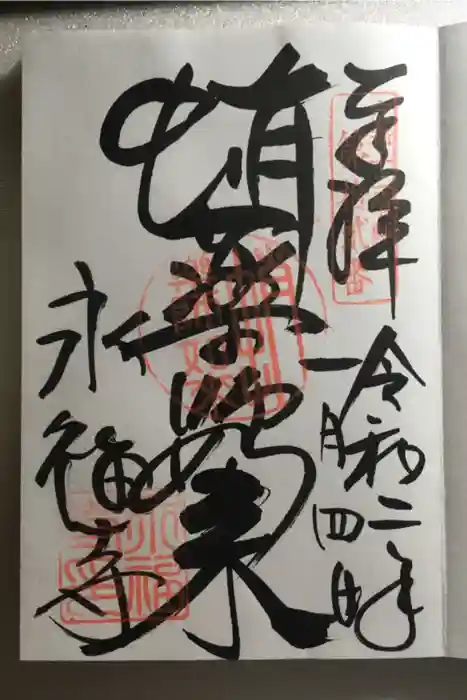 奉拝
令和二年
一月四日
蛸薬師如来
永福寺